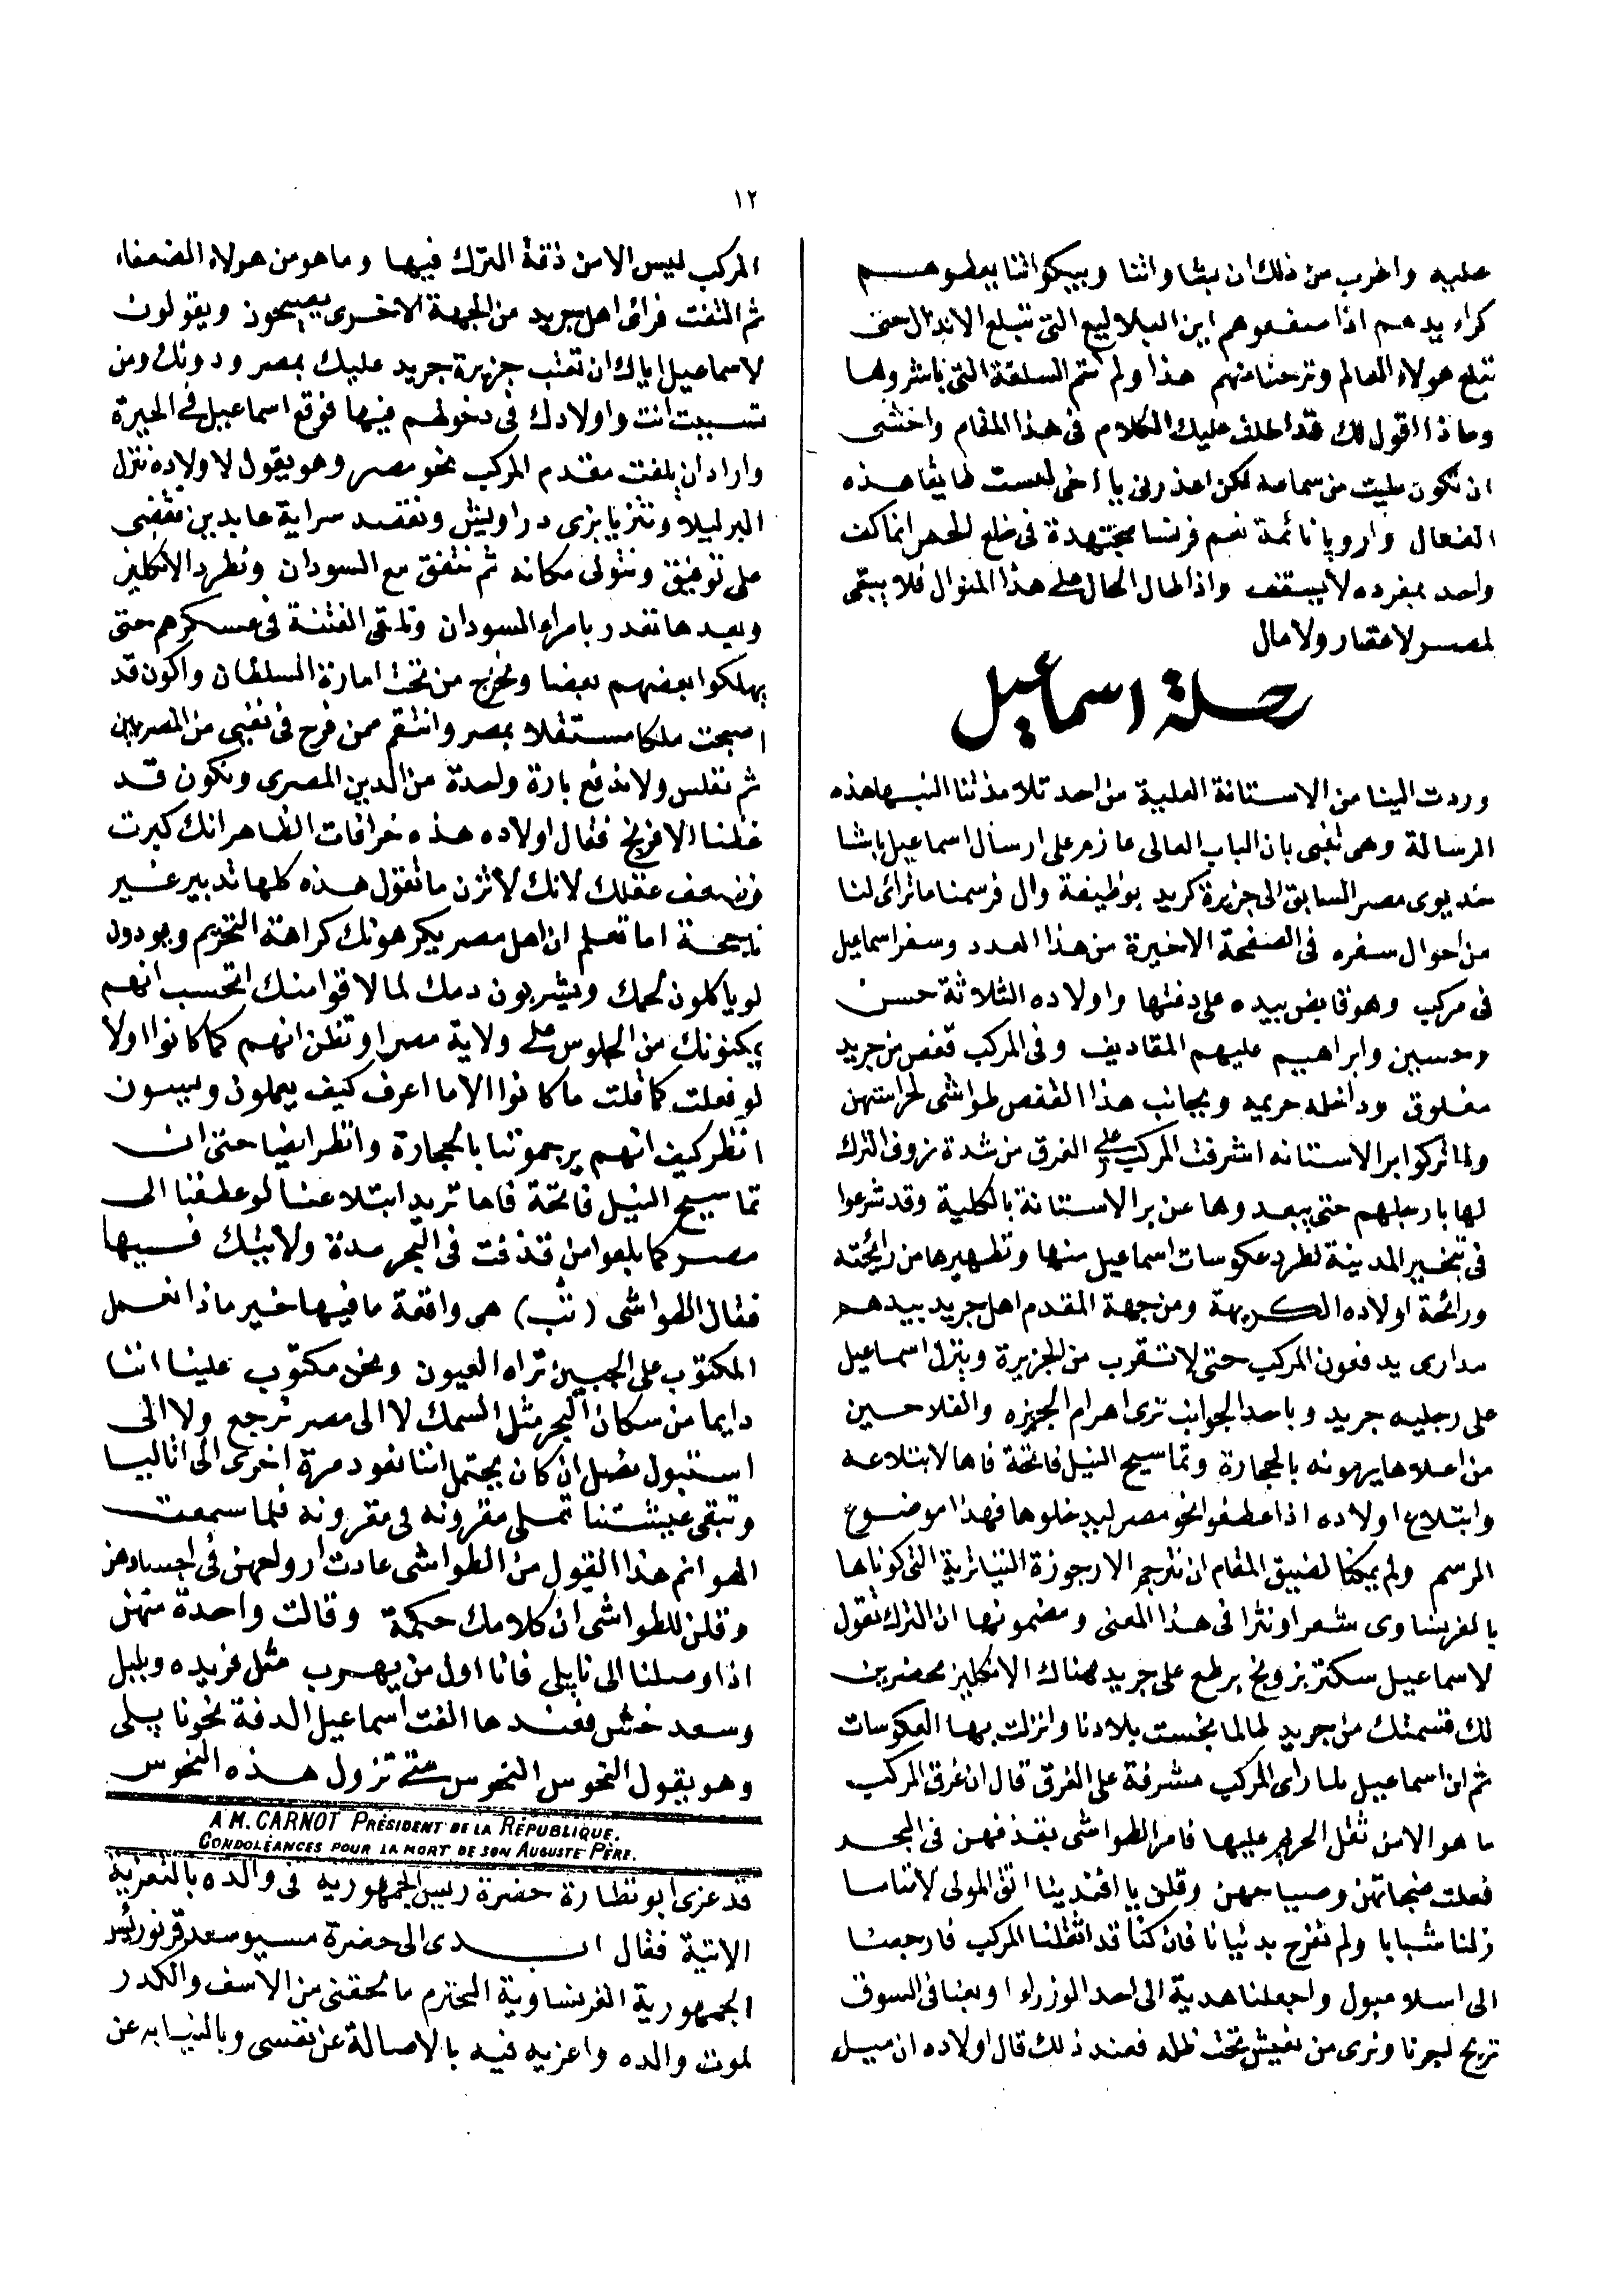 ١٢
عليه واغرب من ذلك ان بشاواتنا وبيكواتنا يعطوهم
كراء يدهم اذا صفعوهم اين البلاليع التى تبلع الانذال حتى
تبلع هولاء العالم وترحنا منهم هذا ولم تتم السلعة التى باشروها
وماذا اقول لك قد اطلت عليك الكلام فى هذا المقام واخشى
ان تكون مليت من سماعه لكن اعذرنى يا اخى لعست لما يقا هذه
الفعال واروپا نائمة نعم فرنسا مجتهدة فى خلع الحمر انما كف
واحد بمفرده لا يسقف واذا طال الحال على هذا المنوال فلا يبقى
لمصر لا عقار ولا مال
رحلة اسماعيل
وردت الينا من الاستانة العلية من احد تلامذتنا النبها هذه
الرسالة وهى تنبى بان الباب العالى عازم على ارسال اسماعيل باشا
خديوى مصر السابق الى جزيرة كريد بوظيفة وال فرسمنا ما ترائ لنا
من احوال سفره فى الصفحة الاخيرة من هذا العدد وسفر اسماعيل
فى مركب وهو قابض بيده على دفتها واولاده الثلاثة حسن
وحسين وابراهيم عليهم المقاديف وفى المركب قفص من جريد
مغلوق وداخله حريمه وبجانب هذا القفص طواشى لحراستهن
ولما تركوا بر الاستانه اشرفت المركب على الغرق من شدة زوف الترك
لها بارجلهم حتى يبعدوها عن بر الاستانة بالكلية وقد شرعوا
فى تبخير المدينة لطرد عكوسات اسماعيل منها وتطهيرها من رائحته
ورائحة اولاده الكريهة ومن جهة المقدم اهل جريد بيدهم
مدارى يدفعون المركب حتى لا تتقرب من الجزيرة وينزل اسماعيل
على رجليه جريد وباحد الجوانب ترى اهرام الجيزه والفلاحين
من اعلاها يرمونه بالحجارة وتماسيح النيل فاتحة فاها لابتلاعه
وابتلاع اولاده اذا عطفوا نحو مصر ليدخلوها فهذا موضوع
الرسم ولم يمكنا لضيق المقام ان نترجم الارجوزة التياترية التى كوناها
بالفرنساوى شعرا ونثرا فى هذا المعنى ومضمونها ان الترك تقول
لاسماعيل سكتر بزوبخ برطع على جريد هناك الانكليز محضرين
لك قسمتك من جريد طالما بخست بلادنا وانزلت بها العكوسات
ثم ان اسماعيل لما راى المركب مشرفة على الغرق قال ان غرق المركب
ما هو الا من ثقل الحريم عليها فامر الطواشى بقذفهن فى البحر
فعلت ضجاتهن وصياحهن وقلن يا افندينا اتق المولى لاننا ما
زلنا شبابا ولم نفرح بدنيانا فان كنا قد اثقلنا المركب فارجعنا
الى اسلامبول واجعلنا هدية الى احد الوزراء او بعنا فى السوق
تربح اجرنا ونرى من نعيش تحت ظله فعند ذلك قال اولاده ان ميل
المركب ليس الا من ذقة الترك فيها وما هو من هولاء الضعفاء
ثم التفت فراى اهل جريد من الجهة الاخرى يصيحون ويقولون
لاسماعيل اياك ان تعتب جزيرة جريد عليك بمصر ودونك ومن
تسببت انت واولادك فى دخولهم فيها فوقع اسماعيل فى الحيرة
واراد ان يلفت مقدم المركب نحو مصر وهو يقول لاولاده ننزل
البر ليلا ونتزيا بزى دراويش ونقصد سراية عابدين نقضى
على توفيق ونتولى مكانه ثم نتفق مع السودان ونطرد الانكليز
وبعدها نغدر بامراء السودان ونلقى الفتنة فى عسكرهم حتى
يهلكوا بعضهم بعضا ونخرج من تحت امارة السلطان واكون قد
اصبحت ملكا مستقلا بمصر وانتقم ممن فرح فى نفيى من المصريين
ثم نفلس ولا ندفع بارة واحدة من الدين المصرى ونكون قد
غظنا الافرنج فقال اولاده هذه خرافات الظاهر انك كبرت
وضعف عقلك لانك لا تزن ما تقول هذه كلها تدبير غير
ناجحة اما تعلم ان اهل مصر يكرهونك كراهة التحريم ويودون
لو ياكلون لحمك ويشربون دمك لما لاقوا منك اتحسب انهم
يمكنونك من الجلوس على ولاية مصر او تظن انهم كما كانوا اولا
لو فعلت كما قلت ما كانوا الا ما اعرف كيف يعملون ويسبون
انظر كيف انهم يرجموننا بالحجارة وانظر ايضا حتى ان
تماسيح النيل فاتحة فاها تريد ابتلاعنا لو عطفنا الى
مصر كما بلعوا من قذفت فى البحر مدة ولايتك فيها
فقال الطواشى (نئب) هى واقعة ما فيها خير ماذا نعمل
المكتوب على الجبين تراه العيون ونحن مكتوب علينا اننا
دايما من سكان البحر مثل السمك لا الى مصر نرجع ولا الى
استنبول نصل ان كان يحتمل اننا نعود مرة اخرى الى اتاليا
وتبقى عيشتنا تملى مقرونه فى مقرونه فلما سمعت
الهوانم هذا القول من الطواشى عادت ارواحهن فى اجسادهن
وقلن للطواشى ان كلامك حكمة وقالت واحدة منهن
اذا وصلنا الى نابلى فانا اول من يهرب مثل فريده وبلبل
وسعد خش فعندها الفت اسماعيل الدفة نحو نا پلى
وهو يقول النحوس النحوس متى تزول هذه النحوس
A M. CARNOT PRÉSIDENT DE LA RÉPUBLIQUE.
CONDOLÉANCES POUR LA MORT DE SON AUGUSTE PÈRE.
قد عزى ابو نظارة حضرة رييس الجمهوريه فى والده بالتعزية
الاتية فقال اسدى الى حضرة مسيو سعد قرنو رئيس
الجمهورية الفرنساوية المحترم ما لحقنى من الاسف والكدر
لموت والده واعزيه فيه بالاصالة عن نفسى وبالنيابه عن